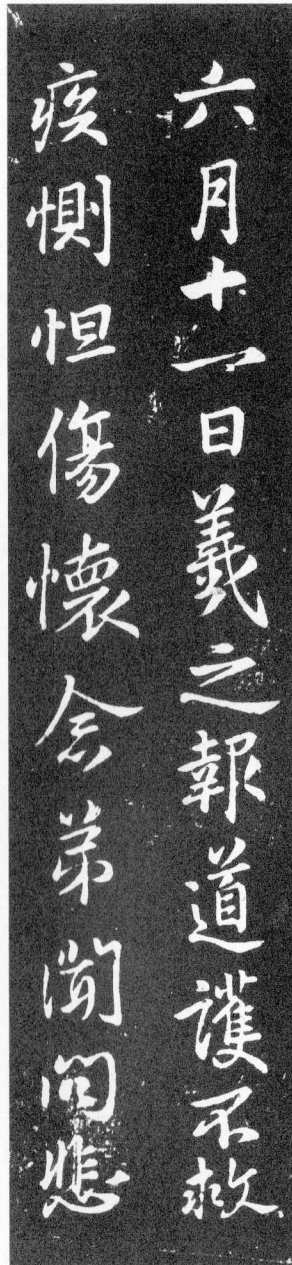 六月十一日羲之報道護不救
疾惻怛傷懷念弟聞問悲